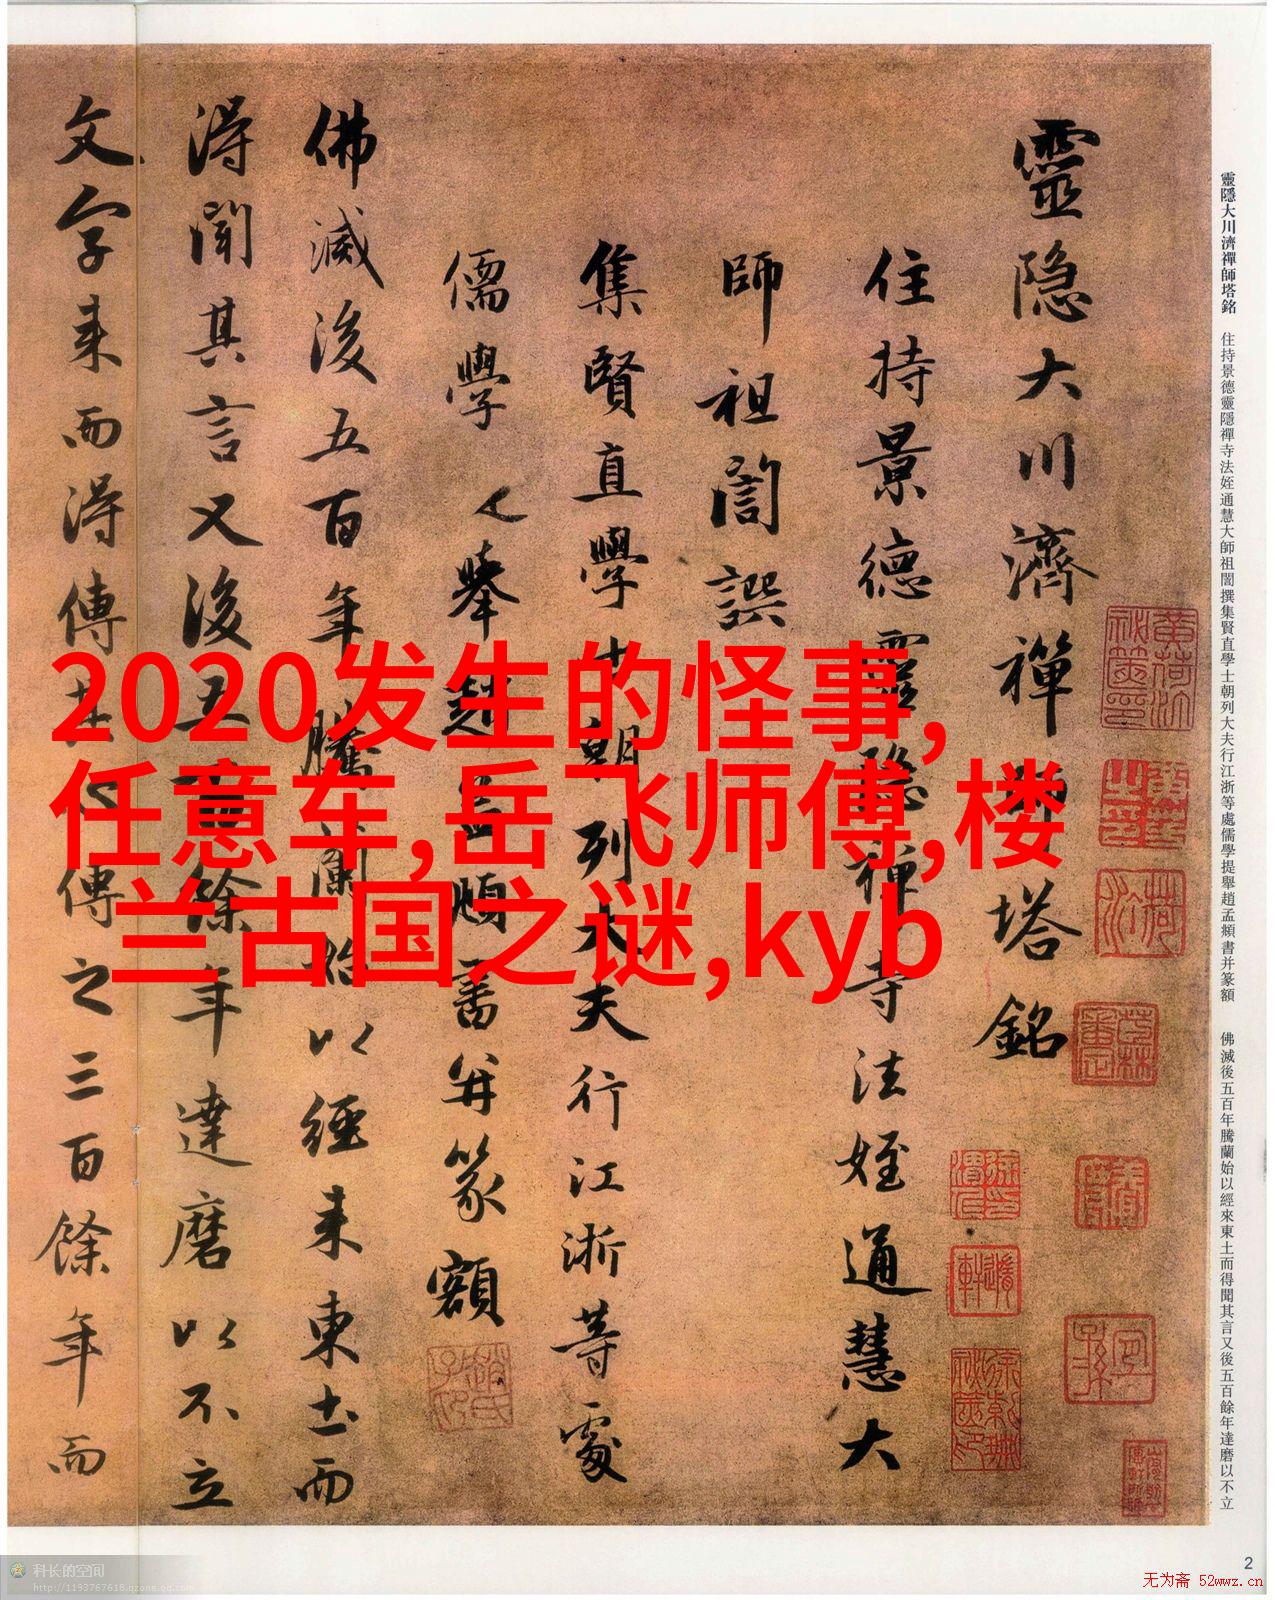 靈隱大川濟禪師塔銘
住持景德靈隱禪寺法姪通慧大
師祖誾譔
集賢直學士朝列大夫行江浙等處
儒學提舉趙孟頫書并篆額
佛滅後五百年騰蘭始以經來東土而
得聞其言又後五百餘年達磨以不立
文字來而得傳其心傳之三百餘年而
靈隱大川濟禪師塔銘 住持景德靈隱禪寺法姪通慧大師祖誾撰集賢直學士朝列大夫行江浙等處儒學提舉趙孟頫書并篆額 佛滅後五百年騰蘭始以經來東土而得聞其言又後五百餘年達磨以不立
2020发生的怪事,
任意车,岳飞师傅,楼
兰古国之谜,kyb
科长的空间
http://1193767618.qzone.qq.com
2
无为斋 52wwz.cn